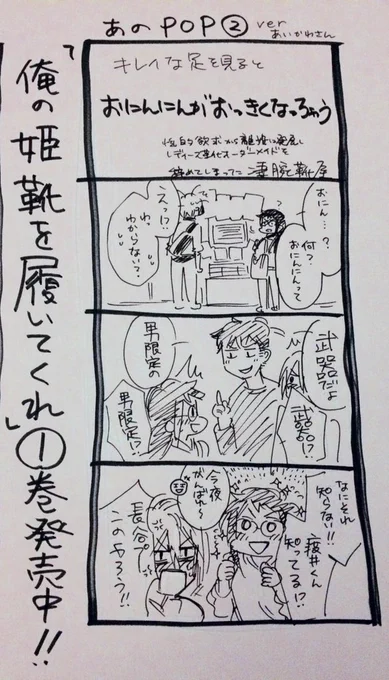 あのPOP② ver
あいかわさん
「俺の姫靴を履いてくれ」①巻発売中!!
キレイな足を見ると
おにんにんがおっきくなっちゃう
性的欲求から
レディース専化オーダーメイドを
極めてしまった凄腕靴屋
おにん…?
何?
おにんにんって
えっ!?
わ、
わからない?
武器だよ
武器!?
男限定の
男限定!?
なにそれ
知らない!!
疲井くん
知ってる!?
今夜
がんばれ〜
長谷プ
このやろう!!